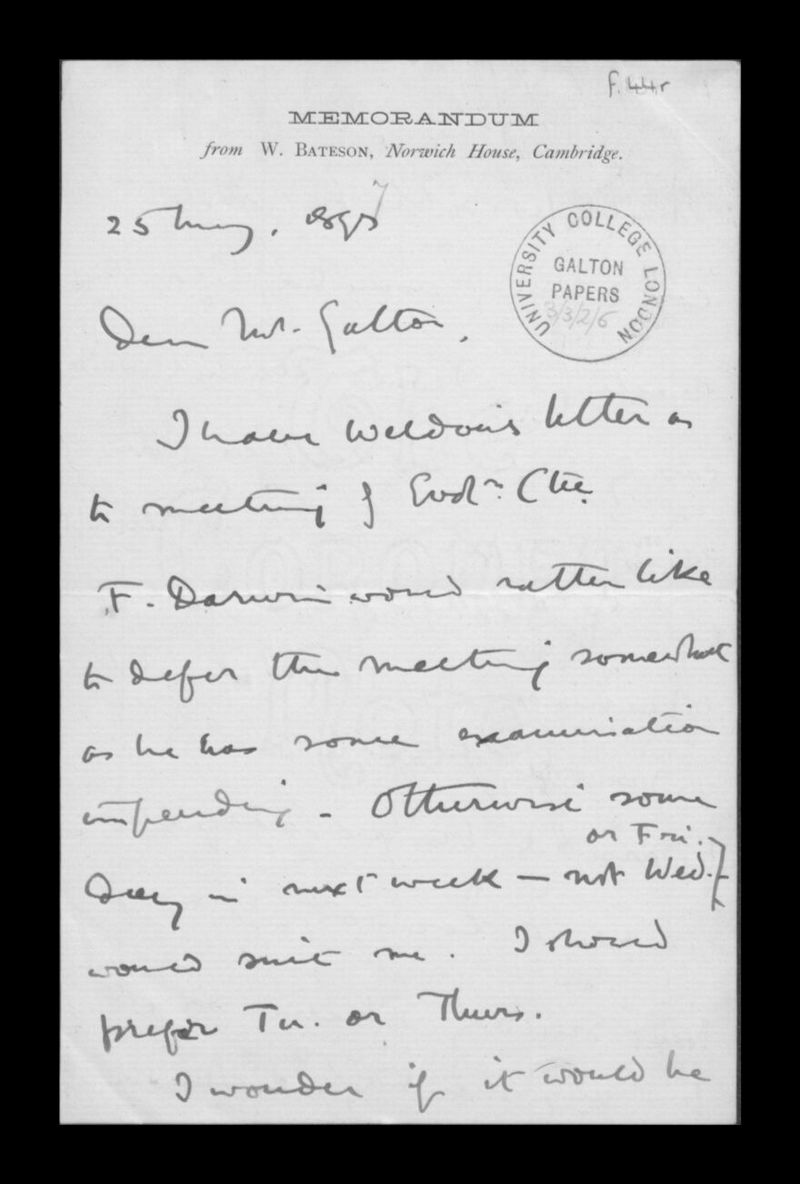 f. 44r
MEMORANDUM
from W. BATESON, Norwich House, Cambridge.
25 May. 1897
UNIVERSITY COLLEGE LONDON
GALTON
PAPERS
3/3/2/6
Dear Mr. Galton,
I have Weldon's letter as
to meeting of Evoln. Ctee.
F. Darwin would rather like
to defer the meeting somewhat
as he has some examination
impending - Otherwise some
or Fri.
day in next week — not Wed. —
would suit me. I should
prefer Tu. or Thurs.
I wonder if it would be